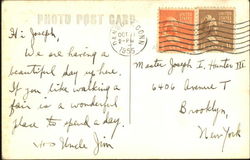 PHOTO POST CARD
Hi Joseph,
We are having a
beautiful day up here.
If you like walking a
fair is a wonderful
place to spend a day.
Uncle Jim
CONN.
OCT
1955
Master Joseph I. Hunter III.
6406 Avenue T
Brooklyn,
New York